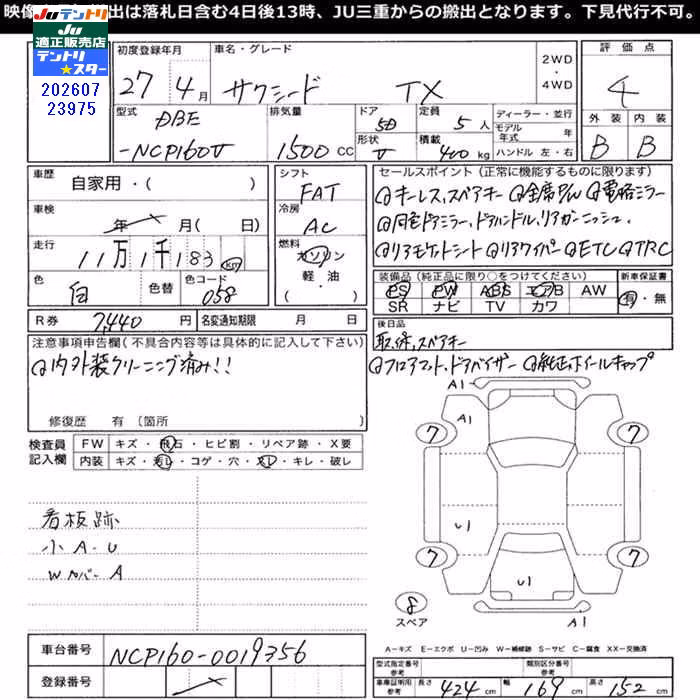 出は落札日含む4日後13時、JU三重からの搬出となります。下見代行不可。
JUテントリ
JU適正販売店
テントリ★スター
202607
23975
初度登録年月
27 4月
車名・グレード
サクシード TX
2WD・4WD
評価点
4
型式
DBE
-NCP160V
排気量
1500 CC
ドア
5D
形状
V
定員
5人
積載
400 kg
ディーラー・並行
モデル年式 年
ハンドル 左・右
外装 内装
B B
車歴
自家用・( )
シフト
FAT
セールスポイント(正常に機能するものに限ります)
キーレス,スペアキー 全席P/W 電格ミラー
同色ドアミラー,ドアハンドル,リアガーニッシュ,
リアモケットシート リアワイパー ETC TRC
車検
年 月( 日)
冷房
AC
走行
11万1千183 km
燃料
ガソリン
軽・油
( )
色
白
色替
色コード
058
装備品(純正品に限り○をつけてください)
PS PW ABS エアB AW
SR ナビ TV カワ
新車保証書
有・無
R券 7,440 円
名変通知期限 月 日
後日品
取,保,スペアキー
注意事項申告欄(不具合内容等は具体的に記入して下さい)
内外装クリーニング済み!!
フロアマット,ドアバイザー 純正ホイールキャップ
修復歴 有 〔箇所 〕
検査員記入欄
FW キズ・飛石・ヒビ割・リペア跡・X要
内装 キズ・汚レ・コゲ・穴・スレ・キレ・破レ
看板跡
小A.U
Wカバー A
A1
A1
7 7
U1
7 7
U1
8
スペア
A1
A=キズ E=エクボ U=凹み W=補修跡 S=サビ C=腐食 XX=交換済
車台番号
NCP160-0019356
登録番号
型式指定番号 参考
類別区分番号 参考
車庫証明用 参考
長さ 424 cm 幅 169 cm 高さ 152 cm